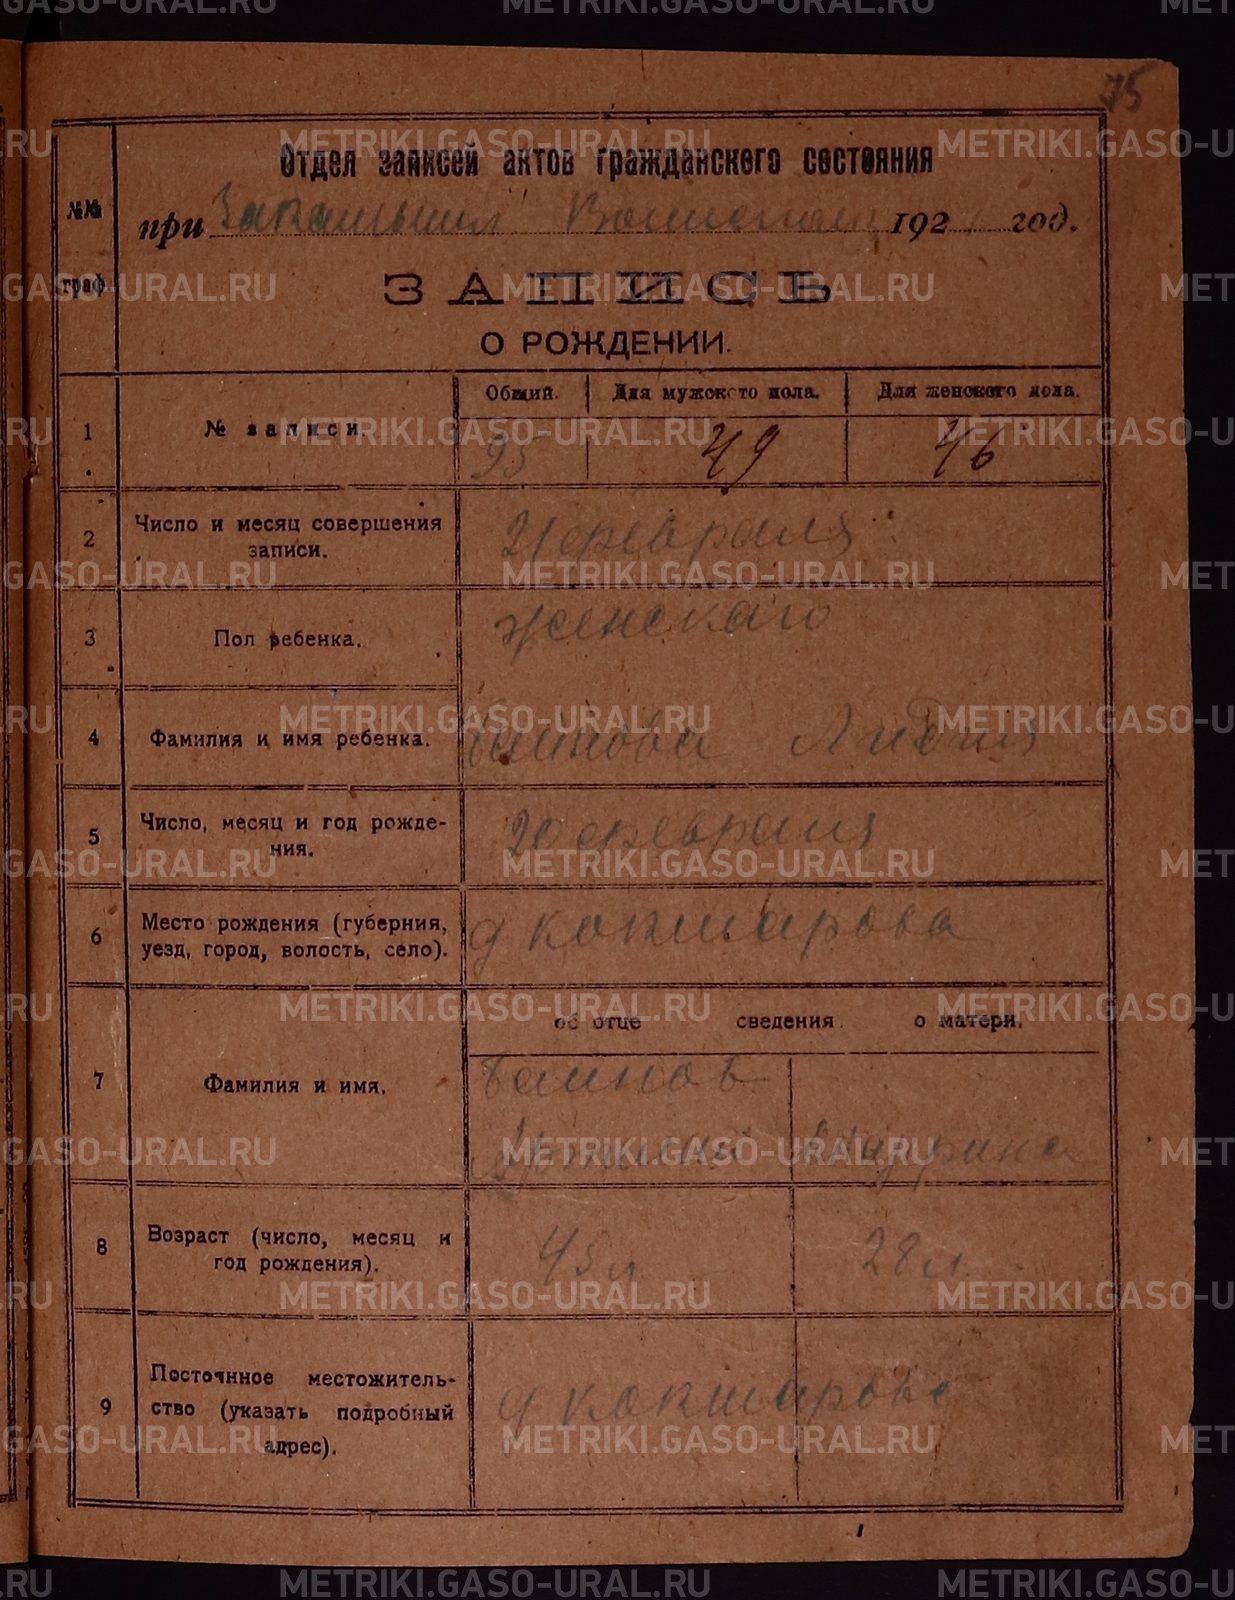 75
Отдел записей актов гражданского состояния
при Волисполк 192 год.
№№ граф
ЗАПИСЬ
О РОЖДЕНИИ.
Общий. Для мужского пола. Для женского пола.
1 № записи. 95 49 46
2 Число и месяц совершения записи. 21 февраля
3 Пол ребенка. женскаго
4 Фамилия и имя ребенка. Баинова Лидия
5 Число, месяц и год рождения. 20 февраля
6 Место рождения (губерния, уезд, город, волость, село). д Кокшарова
об отце сведения о матери.
7 Фамилия и имя. Баинов
8 Возраст (число, месяц и год рождения). 45 л 28 л
9 Постоянное местожительство (указать подробный адрес). д Кокшарова
METRIKI.GASO-URAL.RU